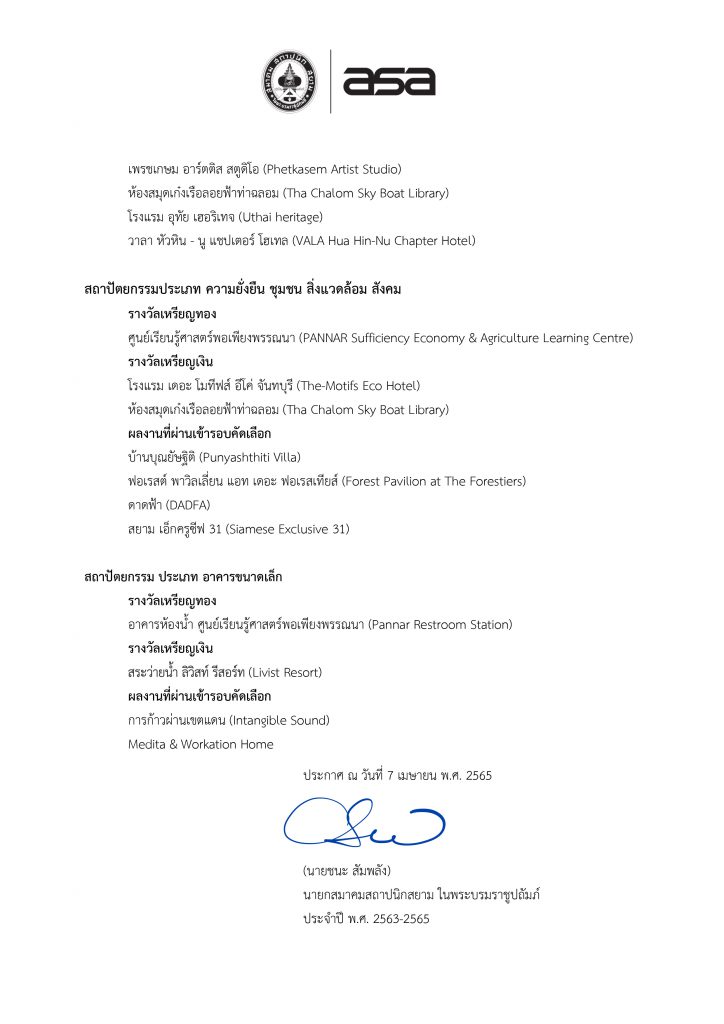 สมาคม สถาปนิก สยาม
asa
เพรชเกษม อาร์ตติส สตูดิโอ (Phetkasem Artist Studio)
ห้องสมุดเก๋งเรือลอยฟ้าท่าฉลอม (Tha Chalom Sky Boat Library)
โรงแรม อุทัย เฮอริเทจ (Uthai heritage)
วาลา หัวหิน - นู แชปเตอร์ โฮเทล (VALA Hua Hin-Nu Chapter Hotel)
สถาปัตยกรรมประเภท ความยั่งยืน ชุมชน สิ่งแวดล้อม สังคม
รางวัลเหรียญทอง
ศูนย์เรียนรู้ศาสตร์พอเพียงพรรณนา (PANNAR Sufficiency Economy & Agriculture Learning Centre)
รางวัลเหรียญเงิน
โรงแรม เดอะ โมทีฟส์ อีโค่ จันทบุรี (The-Motifs Eco Hotel)
ห้องสมุดเก๋งเรือลอยฟ้าท่าฉลอม (Tha Chalom Sky Boat Library)
ผลงานที่ผ่านเข้ารอบคัดเลือก
บ้านบุณยัษฐิติ (Punyashthiti Villa)
ฟอเรสต์ พาวิลเลี่ยน แอท เดอะ ฟอเรสเทียส์ (Forest Pavilion at The Forestiers)
ดาดฟ้า (DADFA)
สยาม เอ็กครูซีฟ 31 (Siamese Exclusive 31)
สถาปัตยกรรม ประเภท อาคารขนาดเล็ก
รางวัลเหรียญทอง
อาคารห้องน้ำ ศูนย์เรียนรู้ศาสตร์พอเพียงพรรณนา (Pannar Restroom Station)
รางวัลเหรียญเงิน
สระว่ายน้ำ ลิวิสท์ รีสอร์ท (Livist Resort)
ผลงานที่ผ่านเข้ารอบคัดเลือก
การก้าวผ่านเขตแดน (Intangible Sound)
Medita & Workation Home
ประกาศ ณ วันที่ 7 เมษายน พ.ศ. 2565
(นายชนะ สัมพลัง)
นายกสมาคมสถาปนิกสยาม ในพระบรมราชูปถัมภ์
ประจำปี พ.ศ. 2563-2565